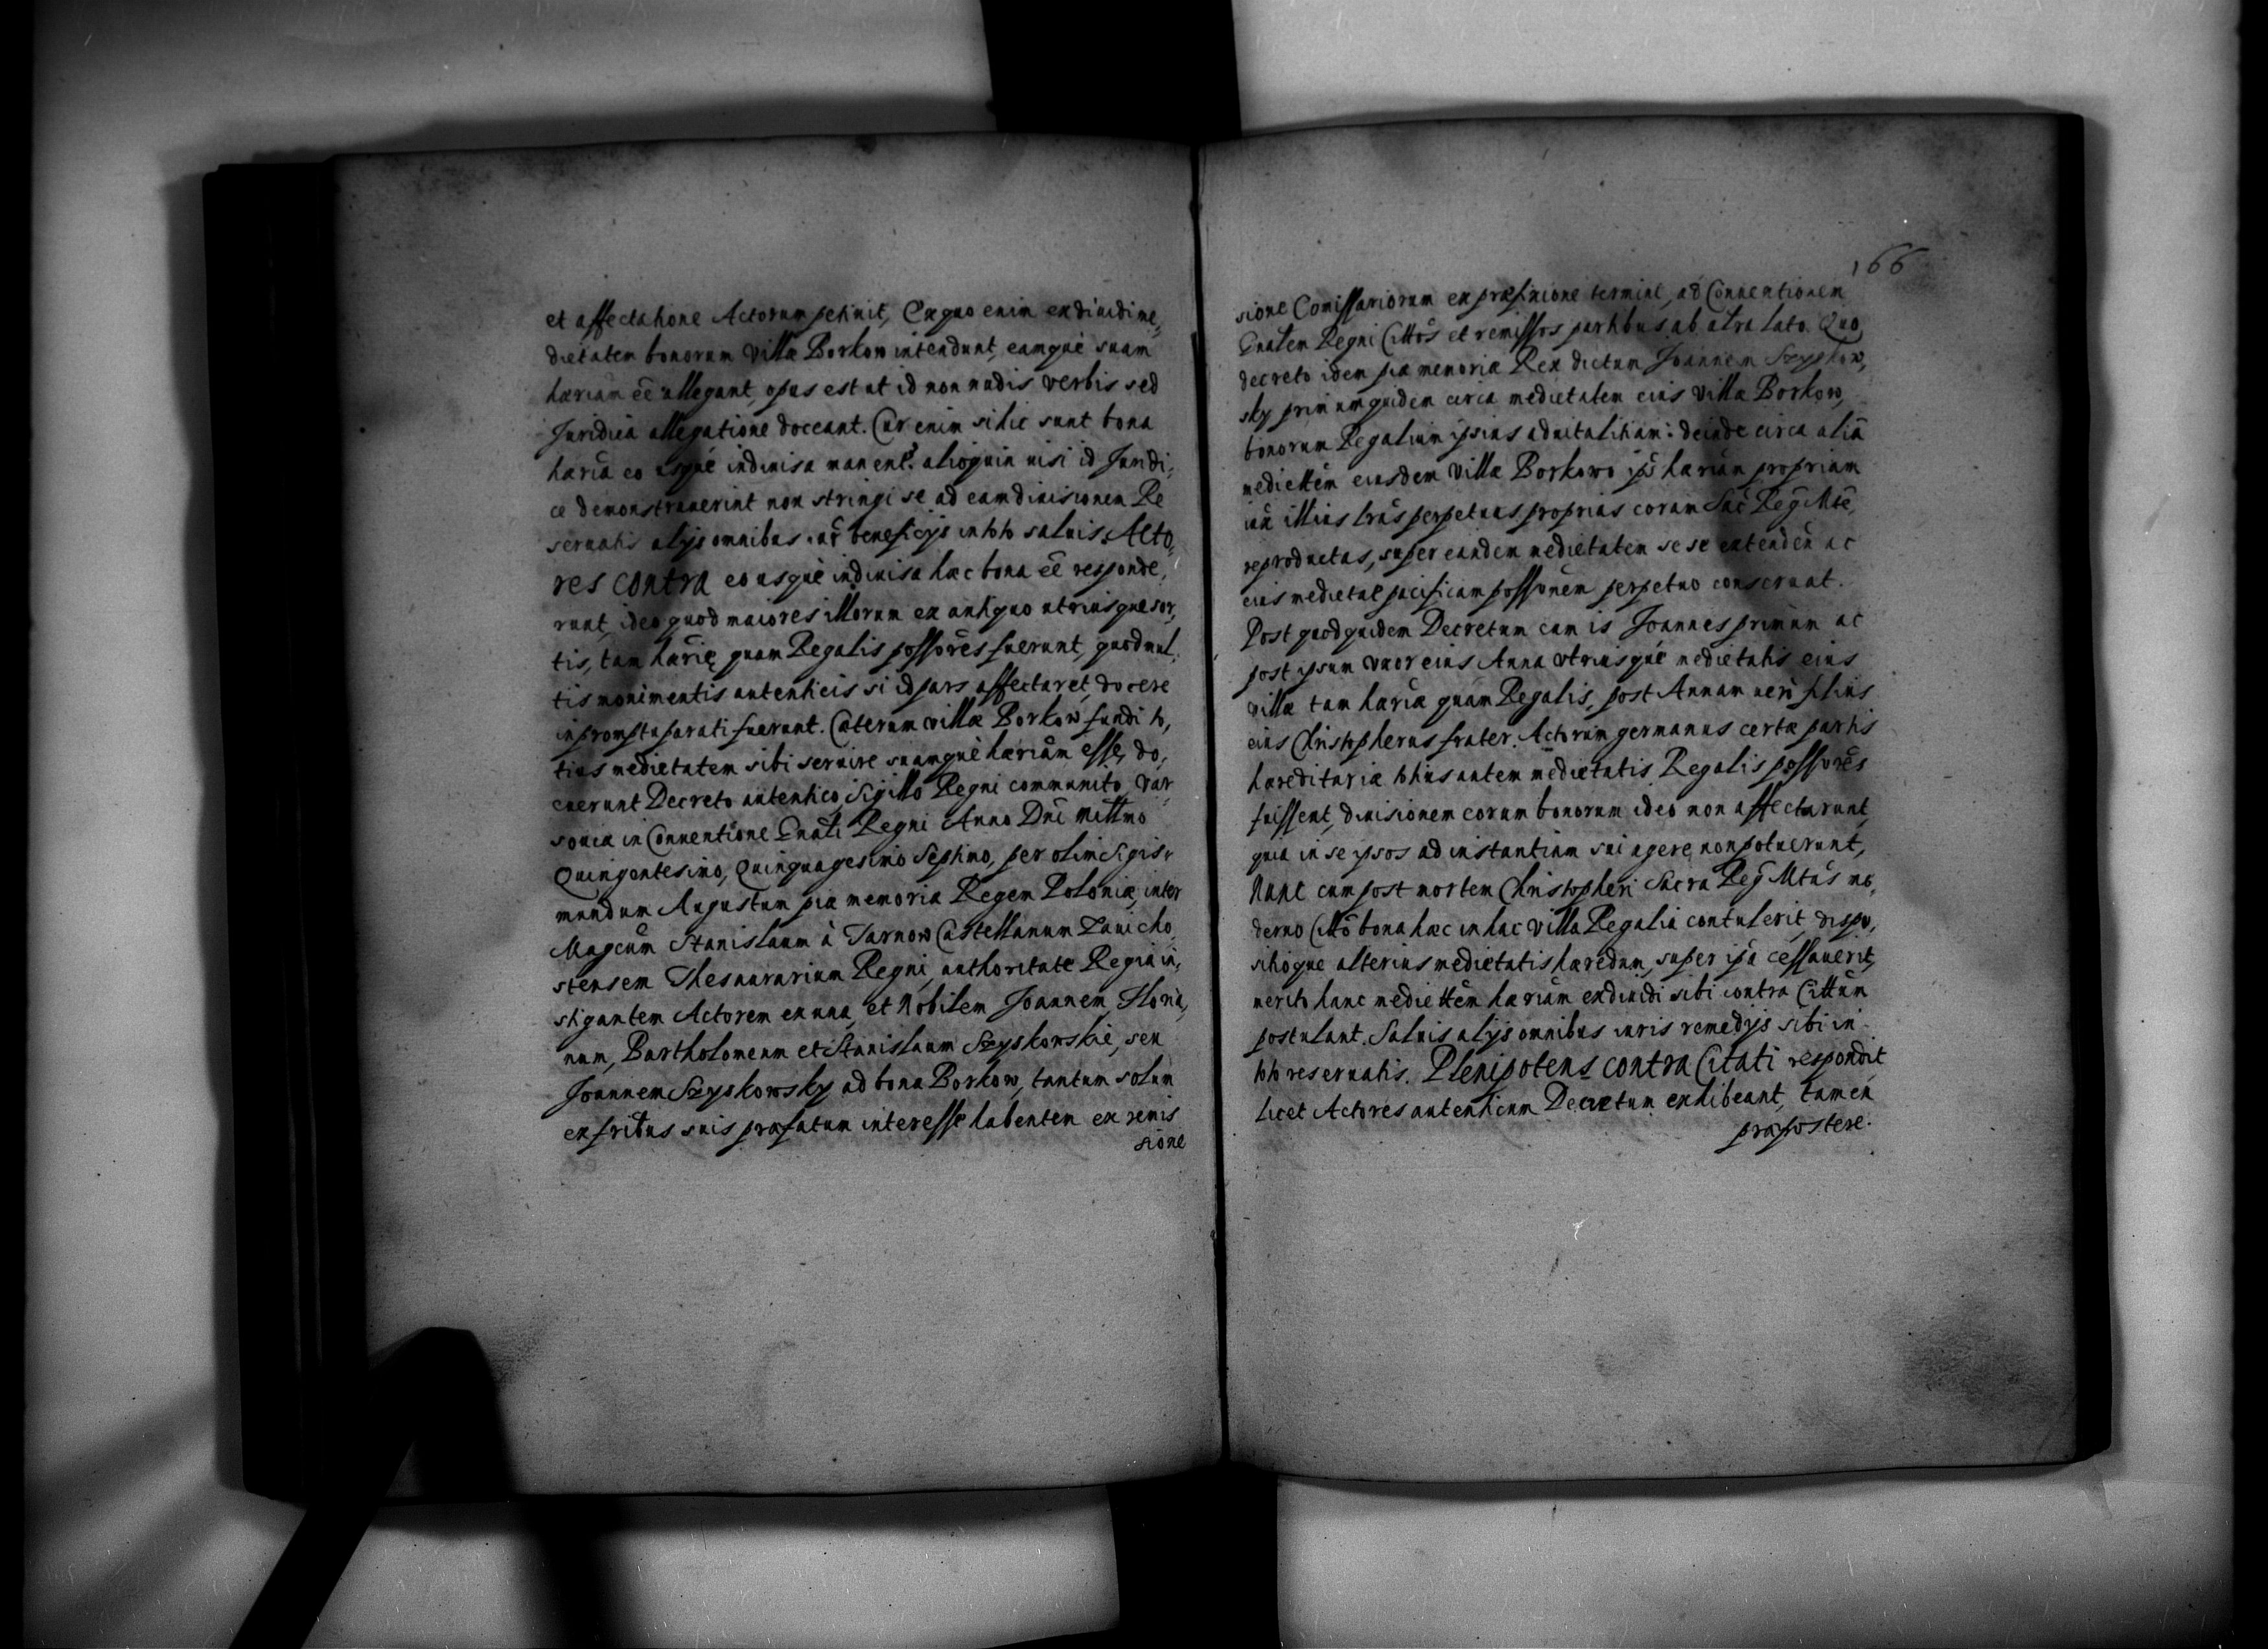 et affectatione Actorum petiuit, Ex quo enim exdiuidi me,
dietatem bonorum Villæ Borkow intendunt, eamquè suam
hæriam eē allegant, opus est ut id non nudis verbis sed
Juridica allegatione doceant. Cur enim si hic sunt bona
hæria eo usquè indiuisa manent? alioquin nisi id Juridi,
ce demonstrauerint non stringi se ad eam diuisionem Re
seruatis alijs omnibus iur̄ beneficijs in toto saluis. Acto,
res contra eousquè indiuisa hæc bona eē responde,
runt, ideo quod maiores illorum ex antiquo utriusque sor,
tis, tam hæriæ quam Regalis possores fuerunt, quod mul,
tis monimentis autenticis si id pars affectaret, docere
in promptu parati fuerunt. Cæterum villæ Borkow fundi to,
tius medietatem sibi seruire suamquè hæriam esse, do,
cuerunt Decreto autentico, Sigillo Regni communito, Var
souiæ in Conuentione Gnāli Regni Anno Dnī Millmo
Quingentesimo, Quinquagesimo Septimo, per olim Sigis,
mundum Augustum piæ memoriæ Regem Poloniæ, inter
Magcum Stanislaum à Tarnow Castellanum Zauicho,
stensem Thesaurarium Regni, authoritate Regia in,
stigantem Actorem ex una, et Nobilem Joannem, Floria,
num, Bartholomeum et Stanislaum Szyskowskie, seu
Joannem Szyskowsky ad bona Borkow, tantum solum
ex fribus suis præfatum interesse habentem ex remis
sione
166
sione Comissariorum ex præfinione termini, ad Conuentionem
Gnalem Regni Cittos et remissos partibus ab altra lato. Quo
decreto idem piæ memoriæ Rex dictum Joannem Szyskow,
sky primum quidem circa medietatem eius Villæ Borkow,
bonorum Regalium ipsius aduitalitiam: deinde circa aliā
mediettēm eiusdem Villæ Borkowo ips hæriam propriam
iux illius lrās perpetuas proprias coram Sac Reg Mtē,
reproductas, super eandem medietatem se se extenden ac
eius medietat pacificam possonēm perpetuo conseruat.
Post quod quidem Decretum cum is Joannes primùm ac
post ipsum vxor eius Anna vtriusquè medietatis eius
villæ tam hæriæ quam Regalis, post Annam uerò filius
eius Christopherus frater Actorum germanus certæ partis
hæreditariæ totius autem medietatis Regalis possorēs
fuissent, diuisionem eorum bonorum ideo non affectarunt,
quia in se ipsos ad instantiam sui agere non potuerunt,
Nunc cum post mortem Christopheri Sacra Reg Mtas mo,
derno Citto bona hæc in hac villa Regalia contulerit, dispo,
sitioque alterius medietatis hæredum, super ipā cessauerit,
meritò hanc mediettēm hæriam exdiuidi sibi contra Cittūm
postulant. Saluis alijs omnibus iuris remedijs sibi in
toto reseruatis. Plenipotens contra Citati respondit
licet Actores autenticum Decretum exhibeant, tamen
præpostere.